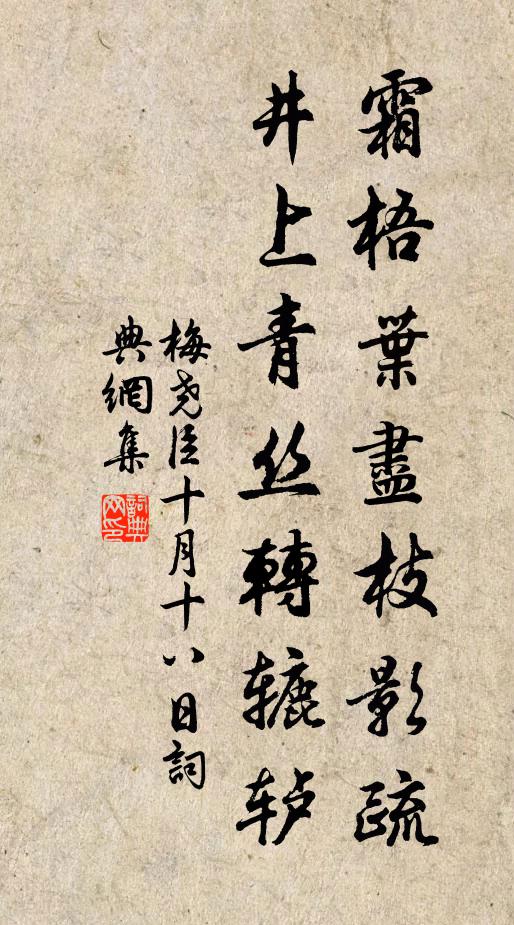 霜梧葉盡枝影疏
井上青丝轉辘轳
梅尧臣十月十八日詞
典網集
詞典网印